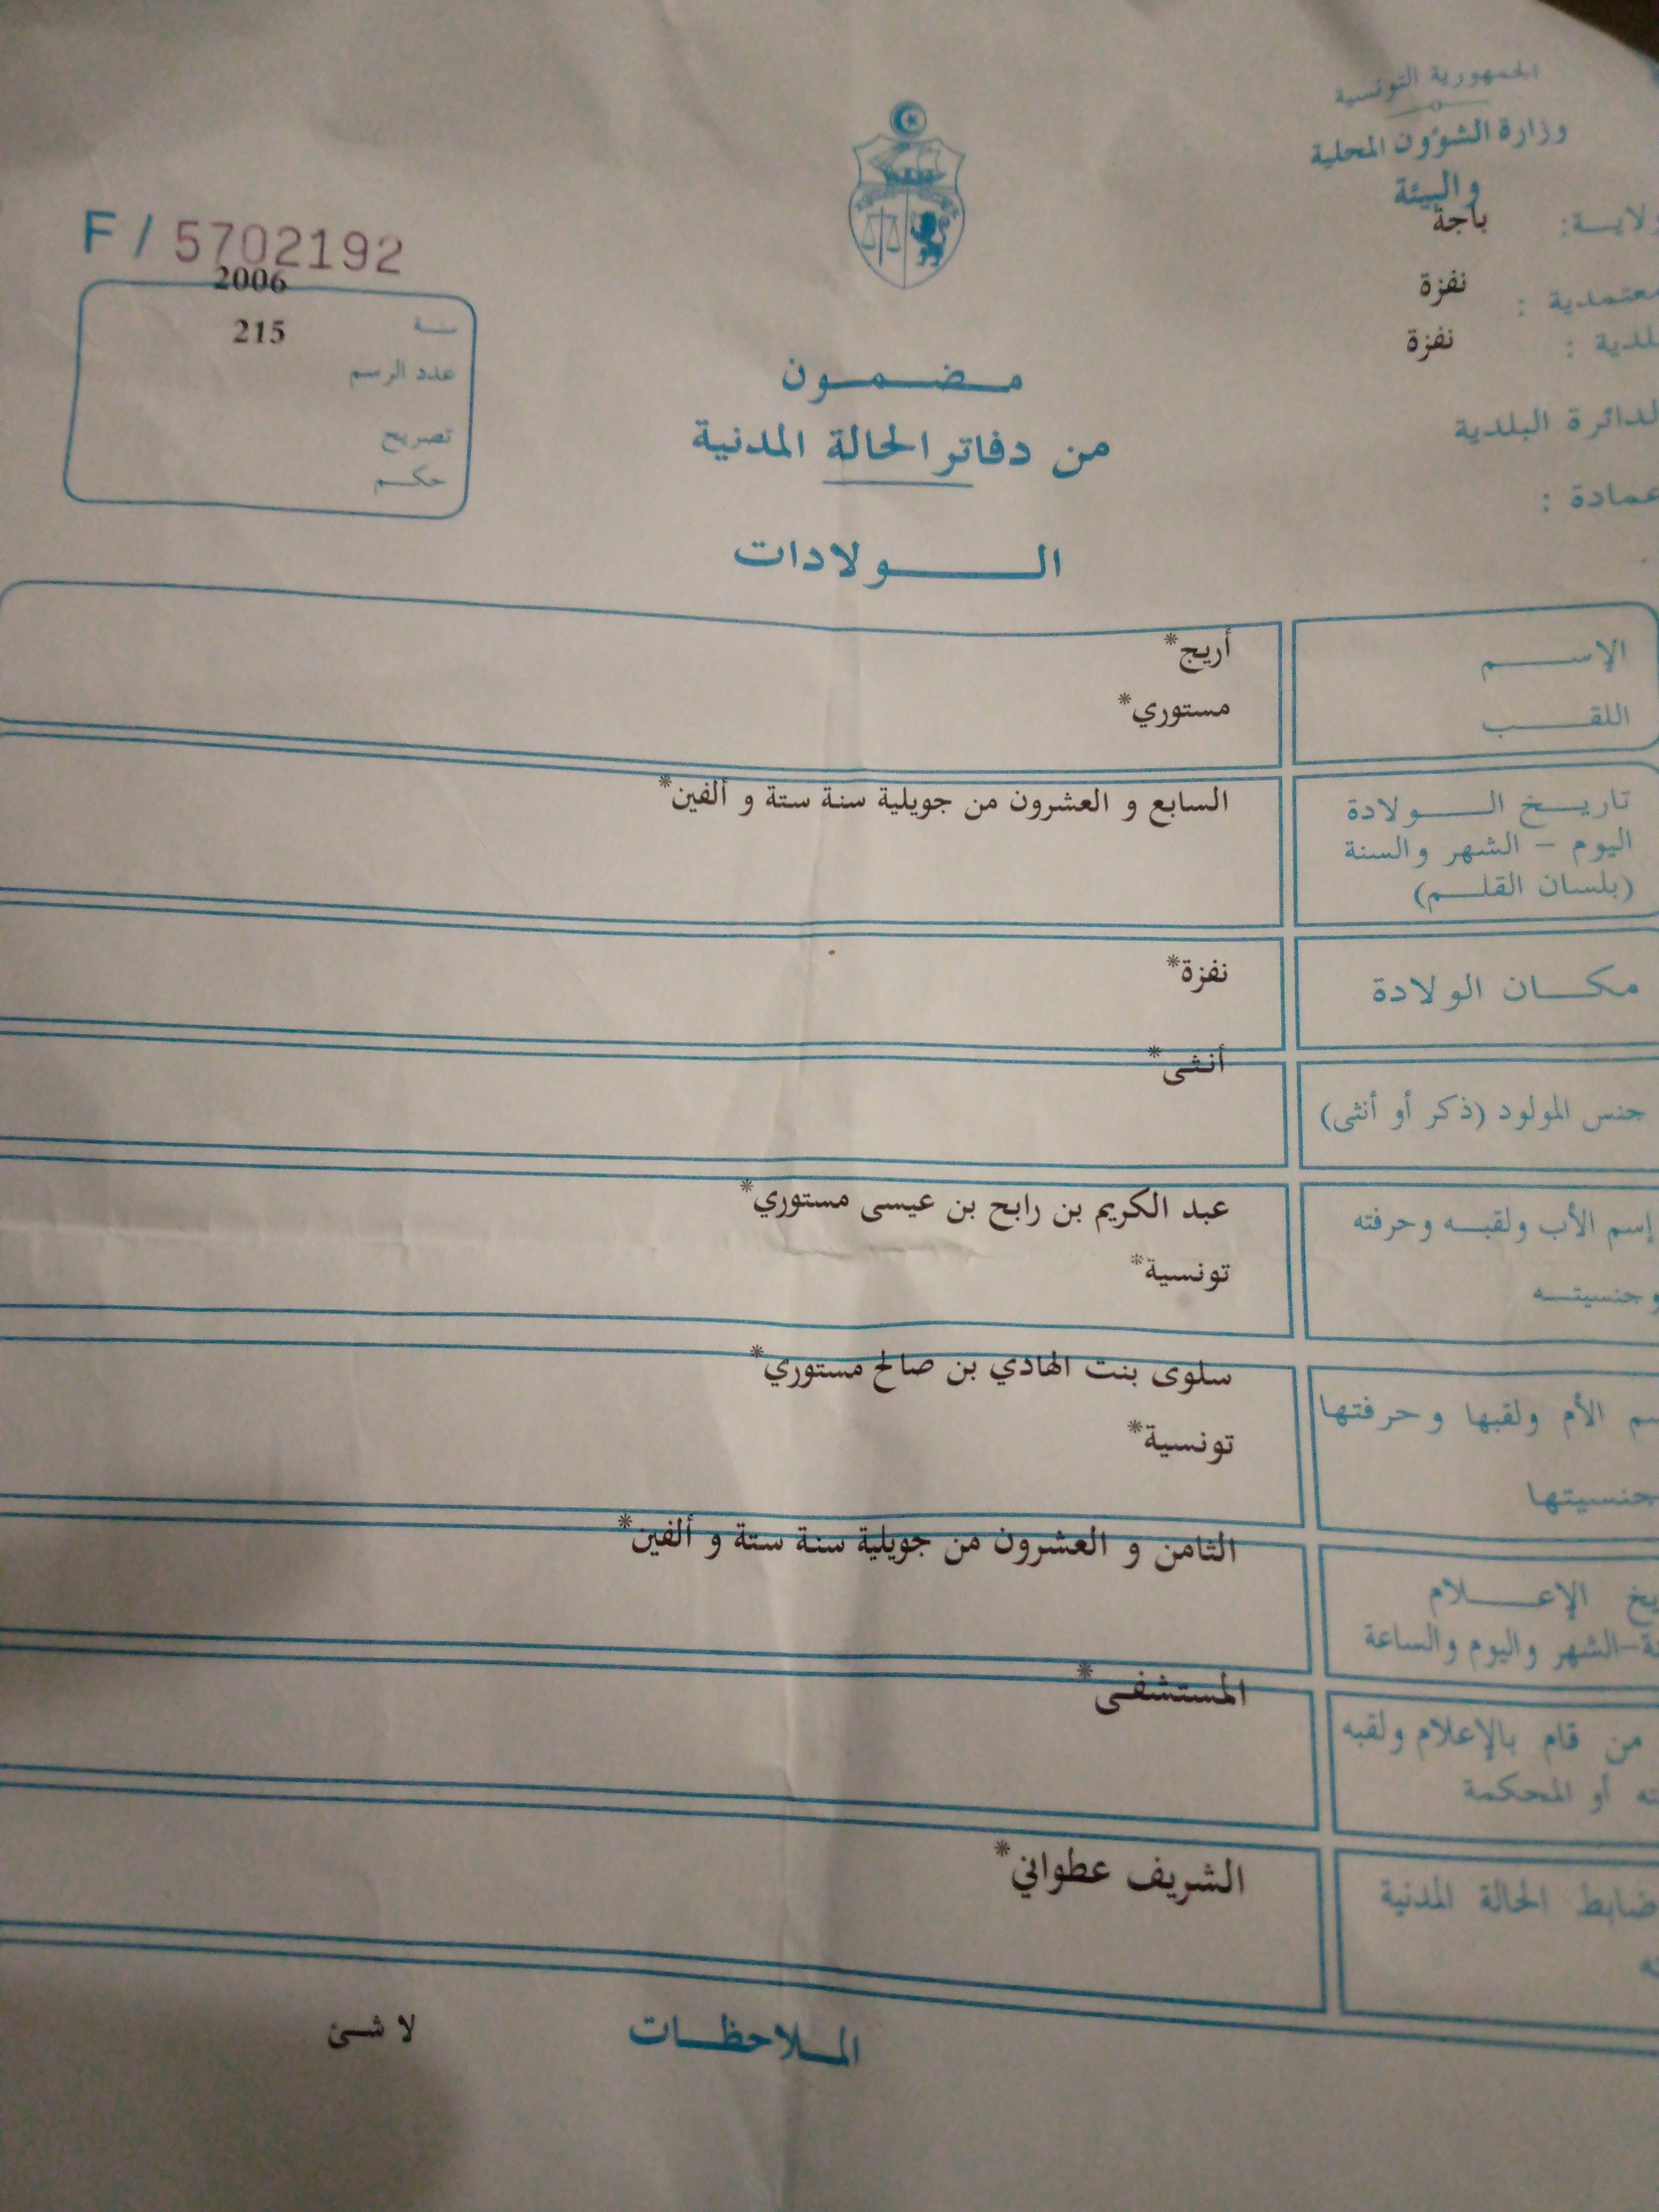 الجمهورية التونسية
وزارة الشؤون المحلية
والبيئة
ولايـة: باجة
معتمدية : نفزة
بلدية : نفزة
الدائرة البلدية
عمادة :
F / 5702192
2006
سنة
215
عدد الرسم
تصريح
حكم
مضمون
من دفاتر الحالة المدنية
الولادات
الإسم
أريج*
اللقب
مستوري*
تاريخ الولادة
اليوم – الشهر والسنة
(بلسان القلم)
السابع و العشرون من جويلية سنة ستة و ألفين*
مكان الولادة
نفزة*
جنس المولود (ذكر أو أنثى)
أنثى*
إسم الأب ولقبه وحرفته
وجنسيته
عبد الكريم بن رابح بن عيسى مستوري*
تونسية*
سم الأم ولقبها وحرفتها
جنسيتها
سلوى بنت الهادي بن صالح مستوري*
تونسية*
يخ الإعلام
ة-الشهر واليوم والساعة
الثامن و العشرون من جويلية سنة ستة و ألفين*
من قام بالإعلام ولقبه
ته أو المحكمة
المستشفى*
ضابط الحالة المدنية
الشريف عطواني*
الملاحظات
لا شئ